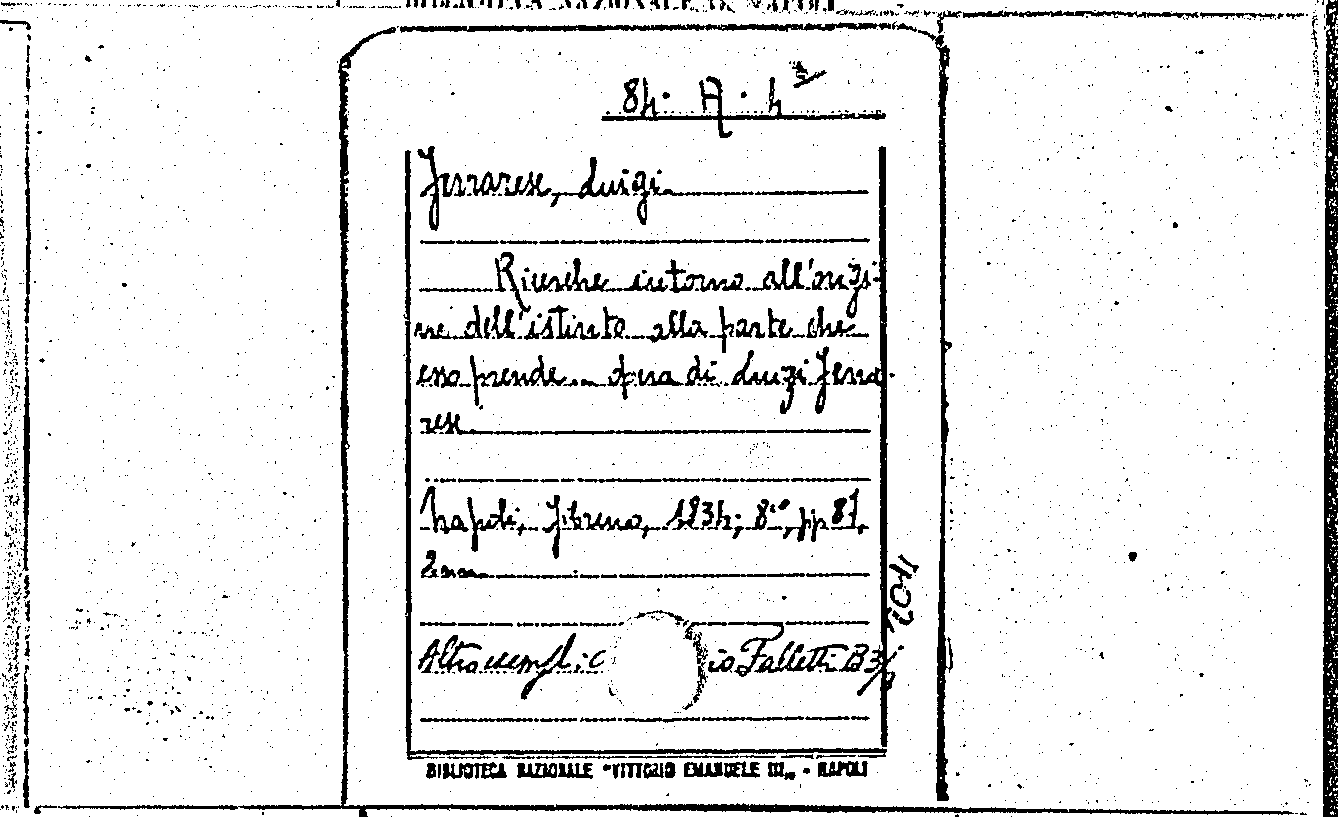 BIBLIOTECA NAZIONALE DI NAPOLI
84. A. 4
Ferrarese, Luigi
Ricerche intorno all'origi-
ne dell'istinto alla parte che
esso prende... opera di Luigi Ferra-
rese
Napoli, Fibreno, 1834; 8°, pp 87,
2 nn
Altro esempl: io Falletti B 3/
BIBLIOTECA NAZIONALE "VITTORIO EMANUELE III" - NAPOLI